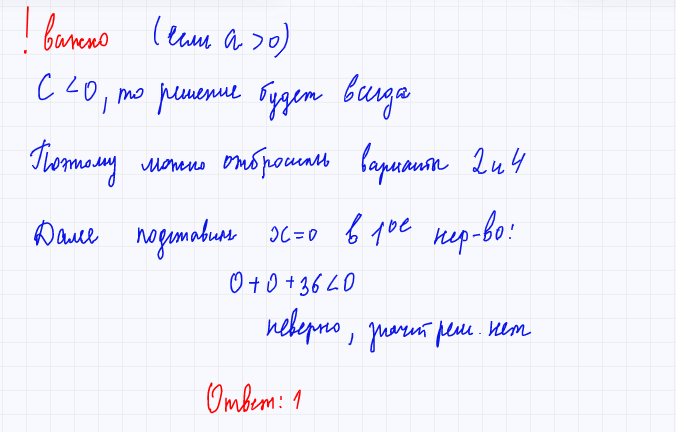 ! важно (если a > 0)
C < 0, то решение будет всегда
Поэтому можно отбросить варианты 2 и 4
Далее подставим x=0 в 1ое нер-во:
0 + 0 + 36 < 0
неверно, значит реш. нет
Ответ: 1